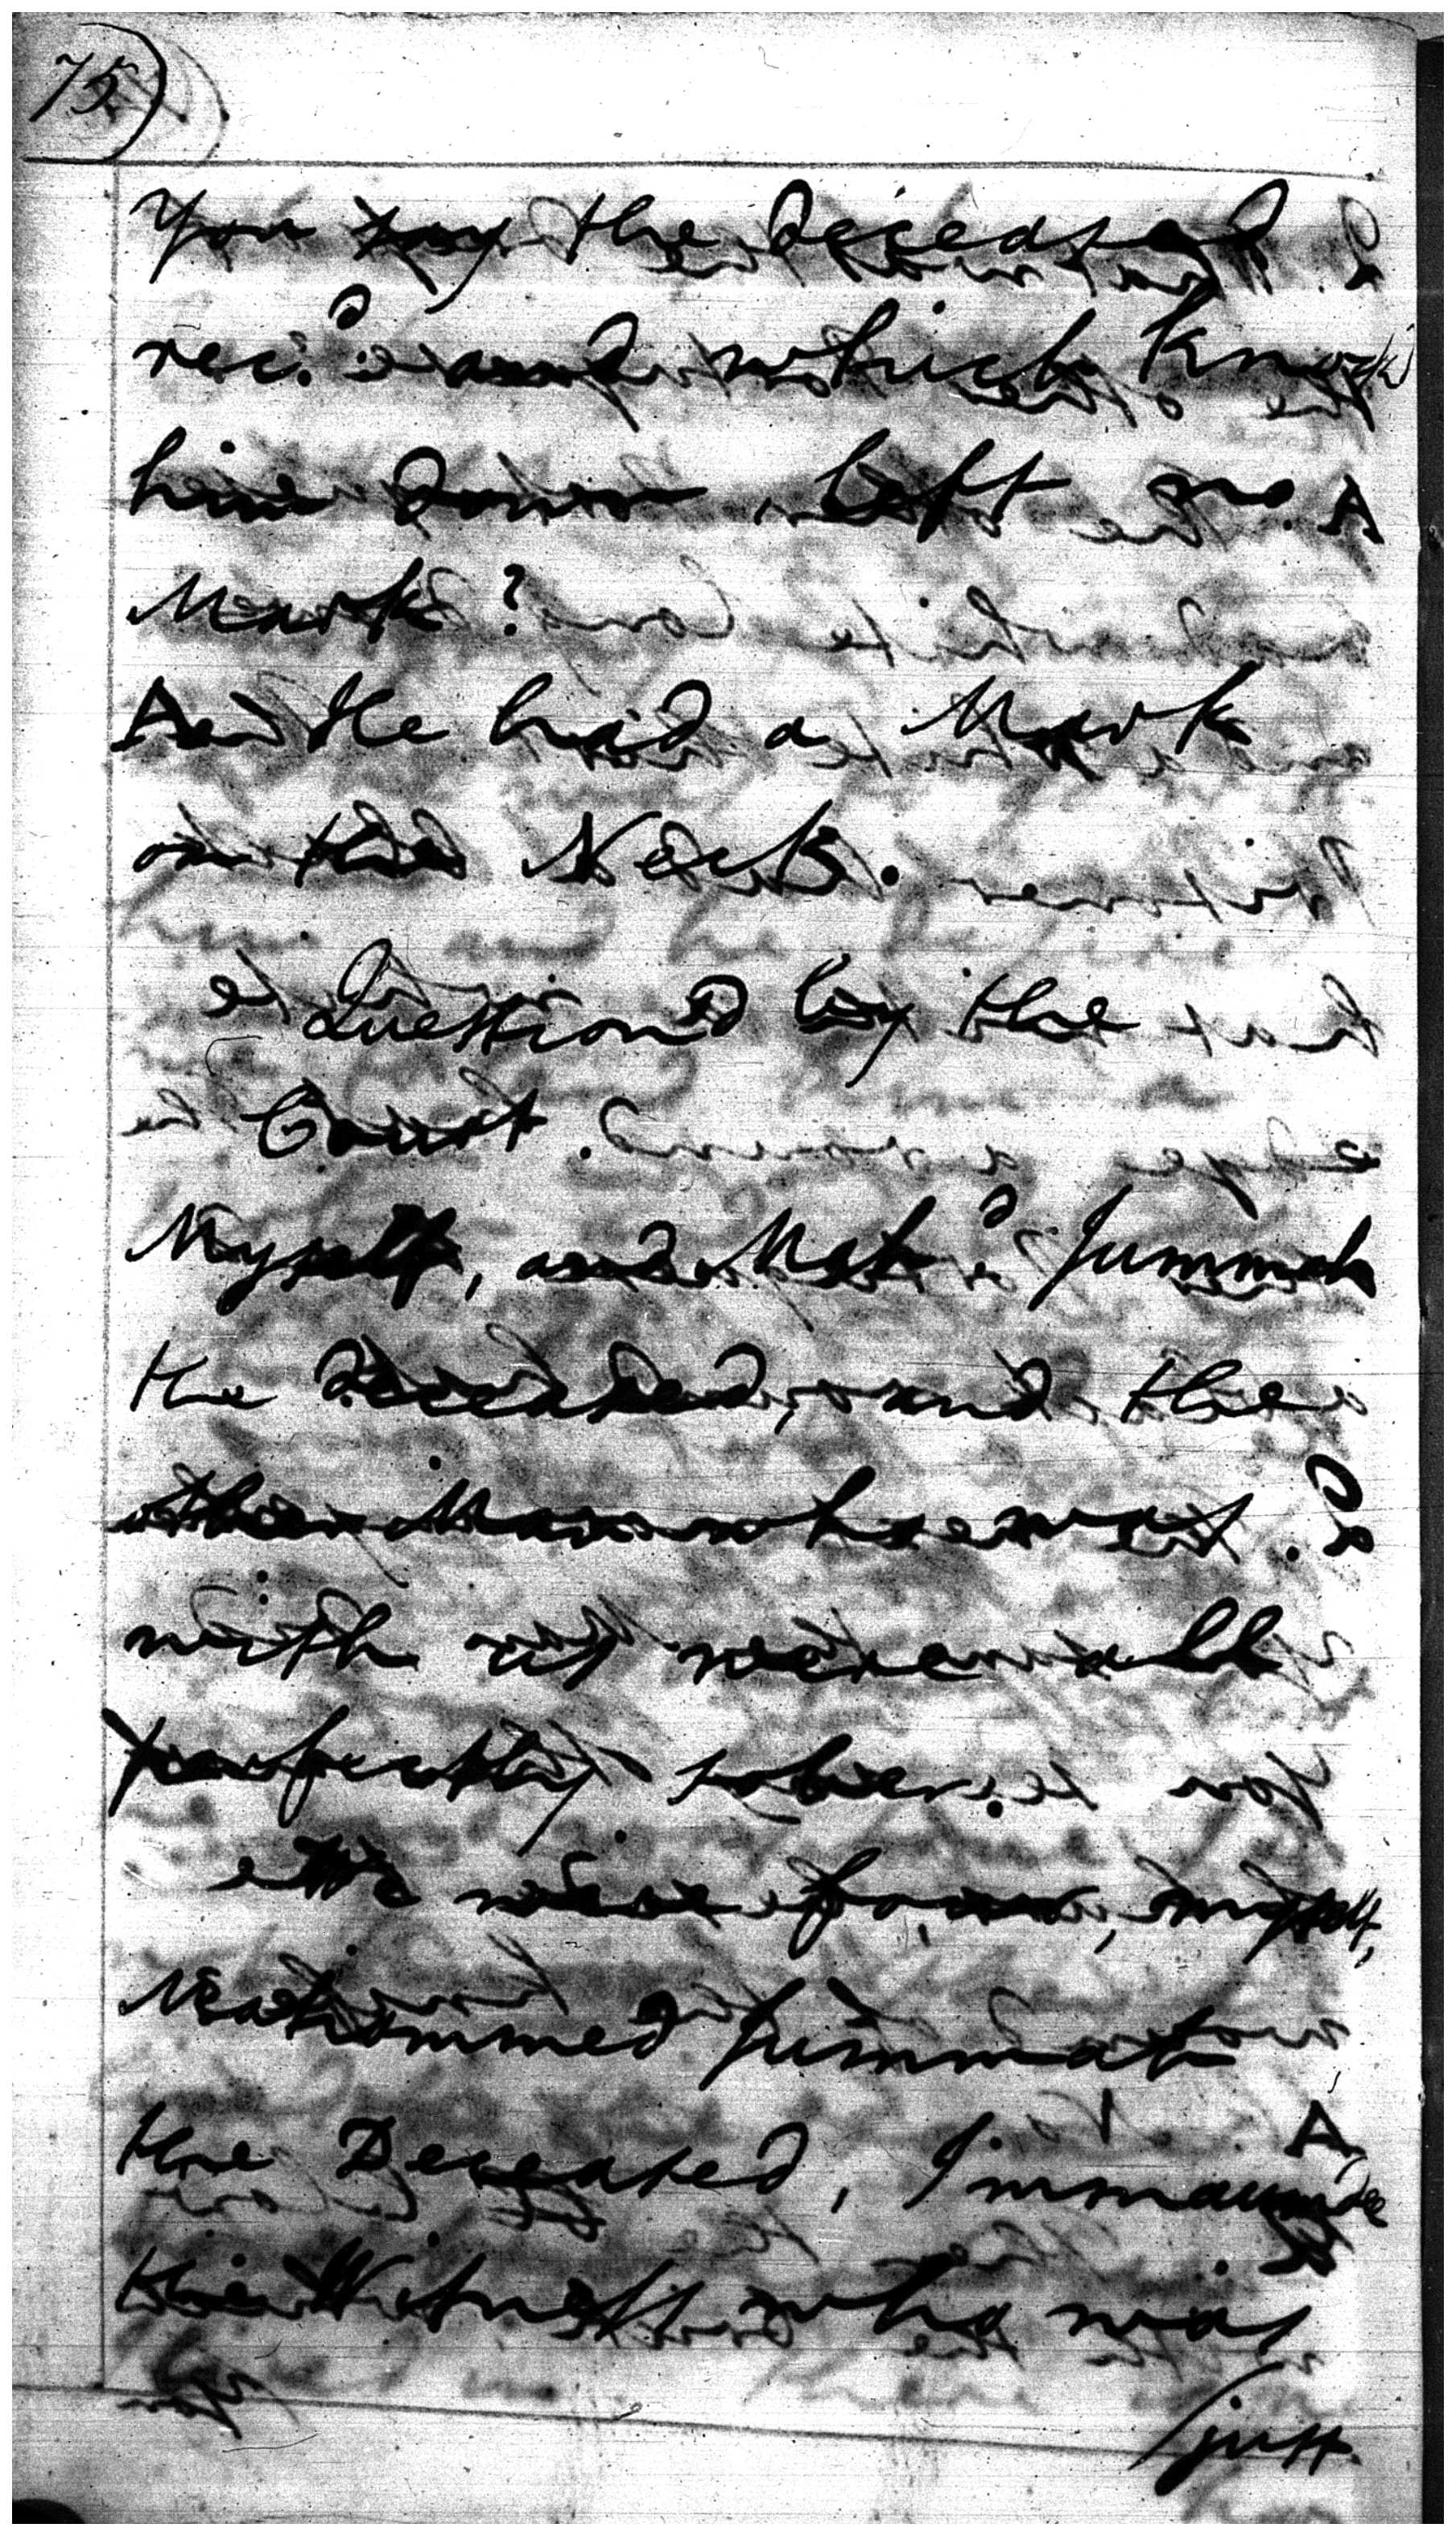 75)
You say the deceased
rec.d and which knock
him down, left no
Mark?
A He had a Mark
on his Neck.
Question'd by the
Court.
Myself, and Mah.d Jummah
the deceased, and the
other Man who was
with us were all
perfectly sober.
We were four, myself,
Mahommed Jummah
the Deceased, Immaumdee
the Witness, who was
just